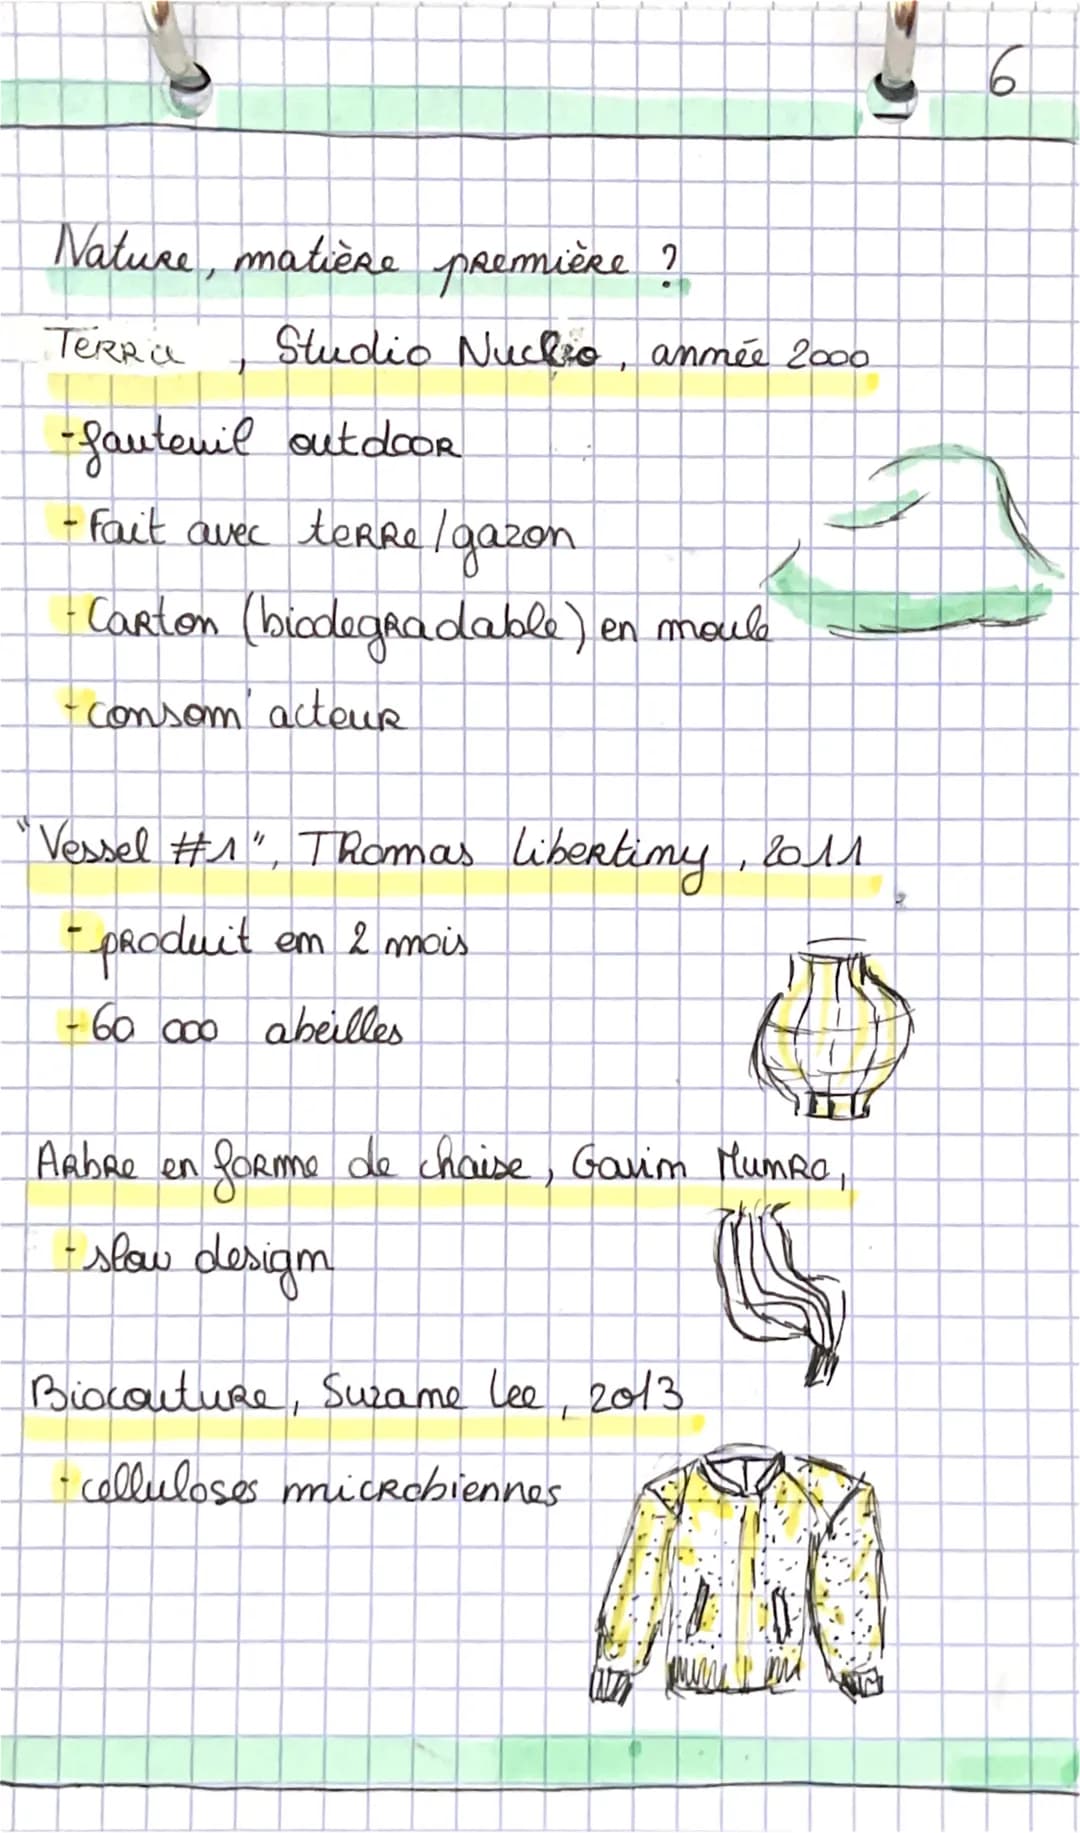 6
Nature, matière première ?
Terra, Studio Nucleo, année 2000
- fauteuil outdoor
- Fait avec terre/gazon
- Carton (biodegradable) en moule
- consom'acteur
"Vessel #1", Thomas Libertimy, 2011
- produit em 2 mois
- 60 000 abeilles
Arbre en forme de chaise, Gavin Munro,
- slow design
Biocouture, Suzame Lee, 2013
- celluloses microbiennes